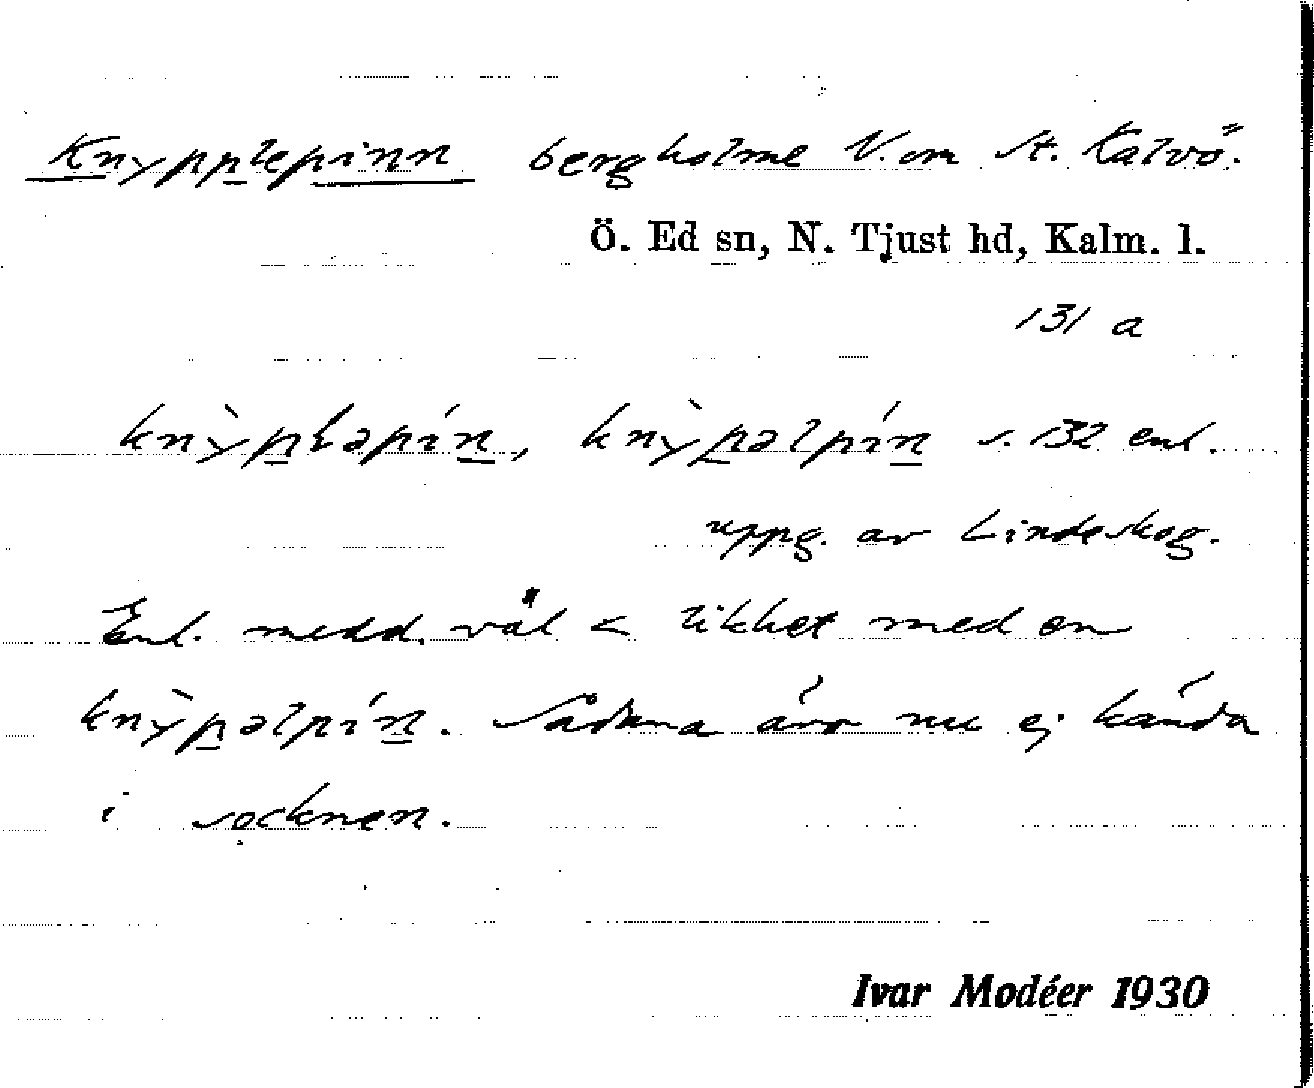 Knypplepinn bergholme V. om St. Kalvö.
Ö. Ed sn, N. Tjust hd, Kalm. l.
131 a
knỳp̲ləpín̲, knỳp̲əlpín̲ s. 132 enl.
uppg. av Lindeskog.
Enl. medd. väl < likhet med en
knỳp̲əlpín̲. Sådana äro nu ej kända
i socknen.
Ivar Modéer 1930